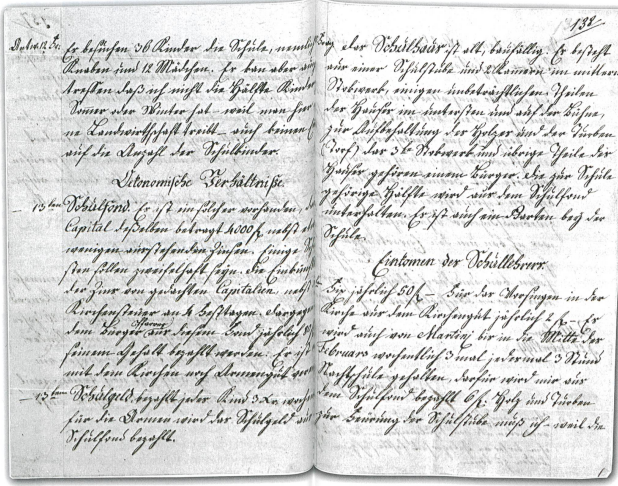 138
Antw. 12. Fr. Es besuchen 36 Kinder die Schule, nemlich
Knaben und 12 Mädchen. Es kan aber
treffen daß ich nicht die Hälfte Kinder
Sommer oder Winter hab – weil man hier
ne Landwirthschaft treibt – auch
auf die Anzahl der Schulkinder.
Oekonomische Verhältniße.
13ten Schulfond. Es ist ein solcher vorhanden,
Capital deßelben betragt 4000 f. nebst
wenigen ausstehenden Zinsen. Einige
sten sollen zweifelhaft seyn. Die
der Zins von gedachten Capitalien, nebst
Kirchensteuer an 4 Festtagen. dargegen
dem Burger Pfarrer aus diesem Fond jährlich
seinem Gehalt bezahlt werden. Er ist
mit dem Kirchen noch Armengut
13ten Schulgeld, bezahlt jedes Kind 3 xr.
für die Armen wird das Schulgeld aus
Schulfond bezahlt.
das Schulhaus ist alt, baufällig. Es besteht
aus einer Schulstube und 2 Kamern im mittern
Stokwerk, einigen unbeträchtlichen Theilen
des Hauses im untersten und auf der Bühne,
zur Aufbehaltung des Holzes und der Turben
(Torf) das 3te Stokwerk und übrige Theile des
Hauses gehören einem Burger. Die zur Schule
gehörige Hälfte wird aus dem Schulfond
unterhalten. Es ist auch ein Garten bey der
Schule.
Einkomen des Schullehrers.
Ist jährlich 50 f. – Für das Vorsingen in der
Kirche aus dem Kirchengut jährlich f. – Es
wird auch von Martinj bis in die Mitte des
Februars wochentlich 3 mal jedesmal 3 Stund
Nachtschule gehalten, dafür wird mir aus
dem Schulfond bezahlt 6 f. Holz und Turben
zur Heurung der Schulstube muß ich – weil die